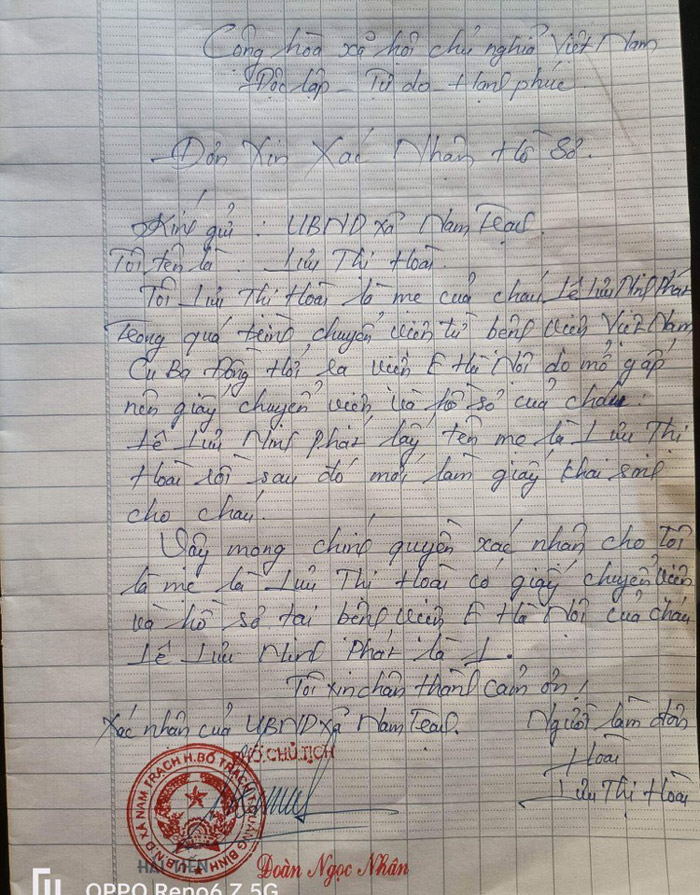 Cộng hòa xã hội chủ nghĩa Việt Nam
Độc lập - Tự do - Hạnh phúc
Đơn Xin Xác Nhận Hồ Sơ.
Kính gửi : UBND xã Nam Trạch.
Tôi tên là : Lưu Thị Hoài
Tôi Lưu Thị Hoài là mẹ của cháu Lê Lưu Minh Phát
Trong quá trình chuyển viện từ bệnh viện Việt Nam
Cu Ba Đồng Hới ra viện E Hà Nội do mổ gấp
nên giấy chuyển viện và hồ sơ của cháu :
Lê Lưu Minh Phát lấy tên mẹ là Lưu Thị
Hoài rồi sau đó mới làm giấy khai sinh
cho cháu.
Vậy mong chính quyền xác nhận cho Tôi
là mẹ là Lưu Thị Hoài có giấy chuyển viện
và hồ sơ tại bệnh viện E Hà Nội của cháu
Lê Lưu Minh Phát là 1.
Tôi xin chân thành cảm ơn !
Xác nhận của UBND xã Nam Trạch. Người làm đơn
PHÓ CHỦ TỊCH
Hoài
Lưu Thị Hoài
U.B.N.D XÃ NAM TRẠCH H.BỐ TRẠCH QUẢNG BÌNH
Đoàn Ngọc Nhân
OPPO Reno6 Z 5G